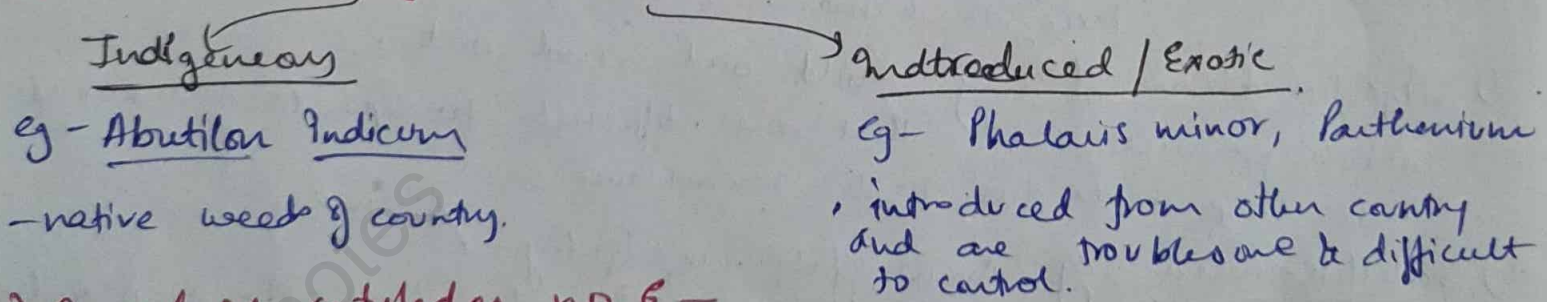 Indigeneous
eg - Abutilon Indicum
- native weeds of country.
Indtroduced / Exotic
eg - Phalaris minor, Parthenium
, introduced from other country
and are troublesome & difficult
to control.
notes